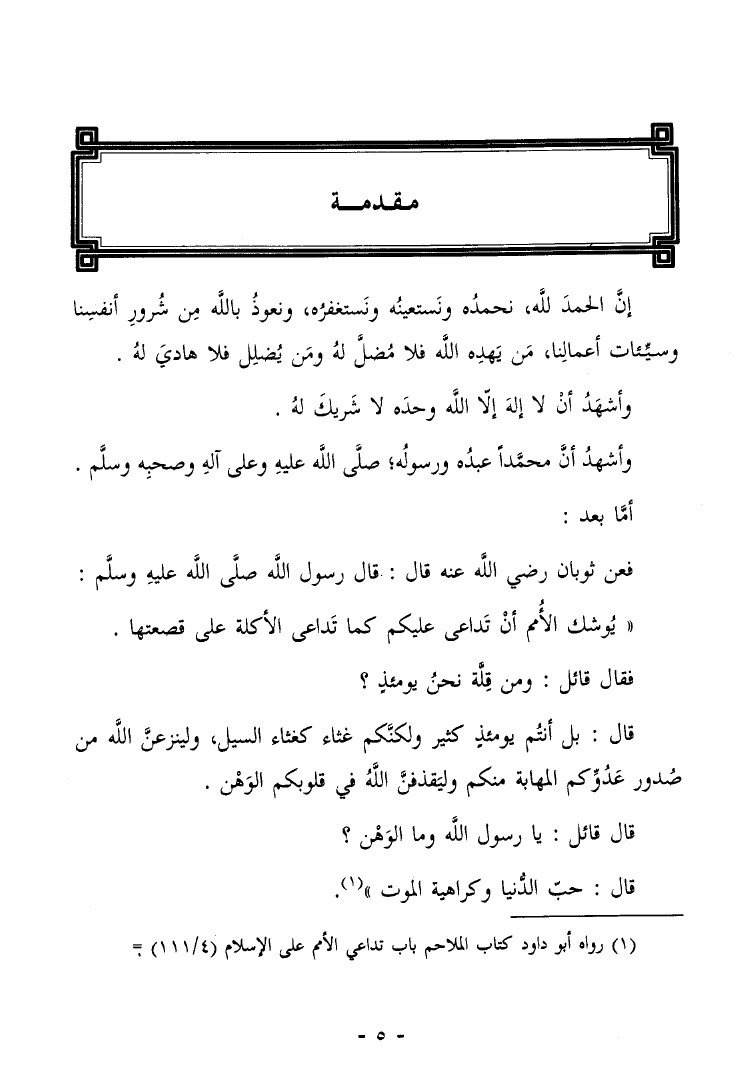 مقدمة
إنَّ الحمدَ لله، نحمدُه ونَستعينُه ونَستغفرُه، ونعوذُ باللَّه مِن شُرورِ أنفسِنا
وسيِّئات أعمالِنا، مَن يَهدِه اللَّه فلا مُضلَّ لهُ ومَن يُضلِل فلا هاديَ لهُ .
وأشهَدُ أنْ لا إلهَ إلّا اللَّه وحدَه لا شَريكَ لهُ .
وأشهدُ أنَّ محمَّداً عبدُه ورسولُه؛ صلَّى اللَّه عليهِ وعلى آلهِ وصحبِه وسلَّم .
أمَّا بعد :
فعن ثوبان رضي اللَّه عنه قال : قال رسول اللَّه صلَّى اللَّه عليهِ وسلَّم :
« يُوشك الأُمم أنْ تَداعى عليكم كما تَداعى الأكلة على قصعتها .
فقال قائل : ومن قِلَّة نحنُ يومئذٍ ؟
قال : بل أنتُم يومئذٍ كثير ولكنَّكم غثاء كغثاء السيل، ولينزعنَّ اللَّه من
صُدور عَدُوِّكم المهابة منكم وليَقذفنَّ اللَّهُ في قلوبكم الوَهْن .
قال قائل : يا رسول اللَّه وما الوَهْن ؟
قال : حبّ الدُّنيا وكراهية الموت »(١).
(١) رواه أبو داود كتاب الملاحم باب تداعي الأمم على الإسلام (١١١/٤) =
- ٥ -